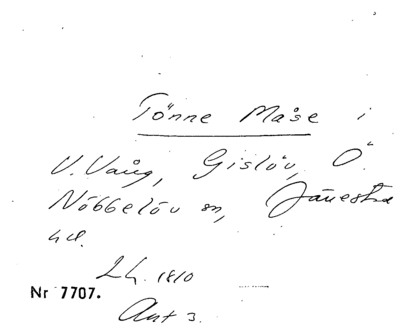 Tönne Måse i
V. Vång, Gislöv, Ö.
Nöbbelöv sn, Järrestad
hd.
Lh. 1810
Nr 7707.
Akt 3.